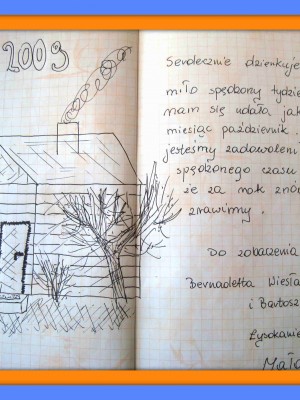 2003
Serdecznie dziękuje
miło spędzony tydzie
nam się udała, jak
miesiąc październik
jesteśmy zadowoleni
spędzonego czasu
że za rok znów
zawimy.
Do zobaczenia
Bernadetta Wiesła
i Bartosz
Łyskanie
Mała